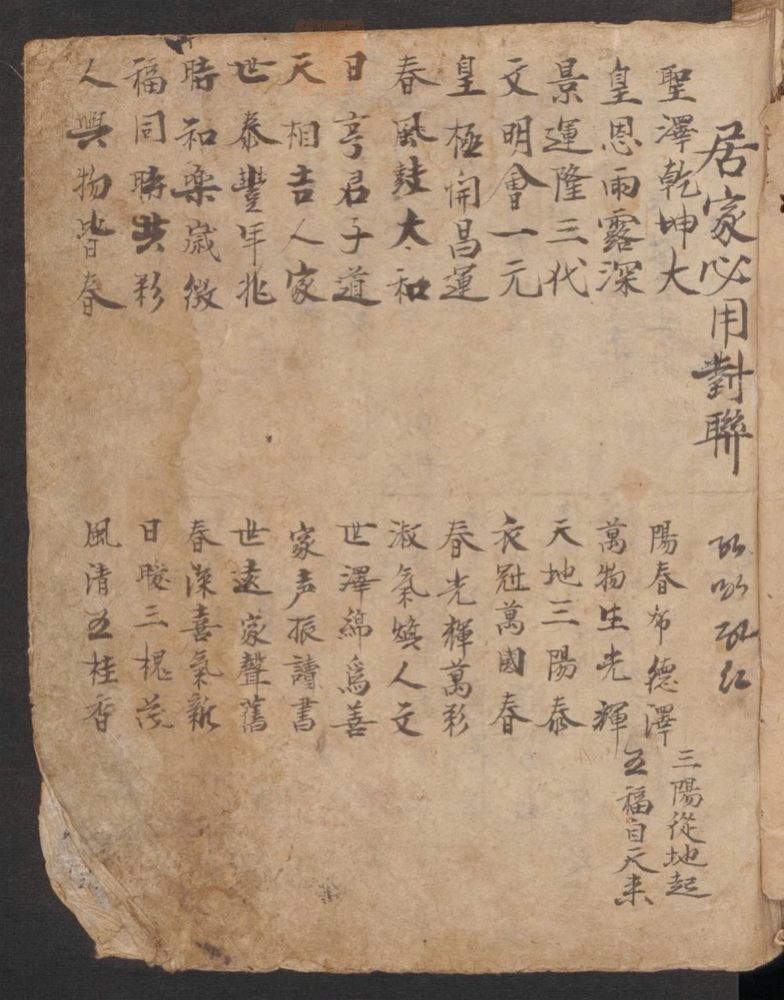 居家必用對聯
聖澤乾坤大
皇恩雨露深
景運隆三代
文明會一元
皇極開昌運
春風鼓太和
日亨君子道
天相吉人家
世泰豐年兆
時和樂歲徵
福同時共彩
人與物皆春
陽春布德澤
萬物生光輝
天地三陽泰
衣冠萬國春
春光輝萬彩
淑氣煥人文
世澤綿為善
家声振讀書
世遠家聲舊
春深喜氣新
日暖三槐茂
風清五桂香
三陽從地起
五福自天来